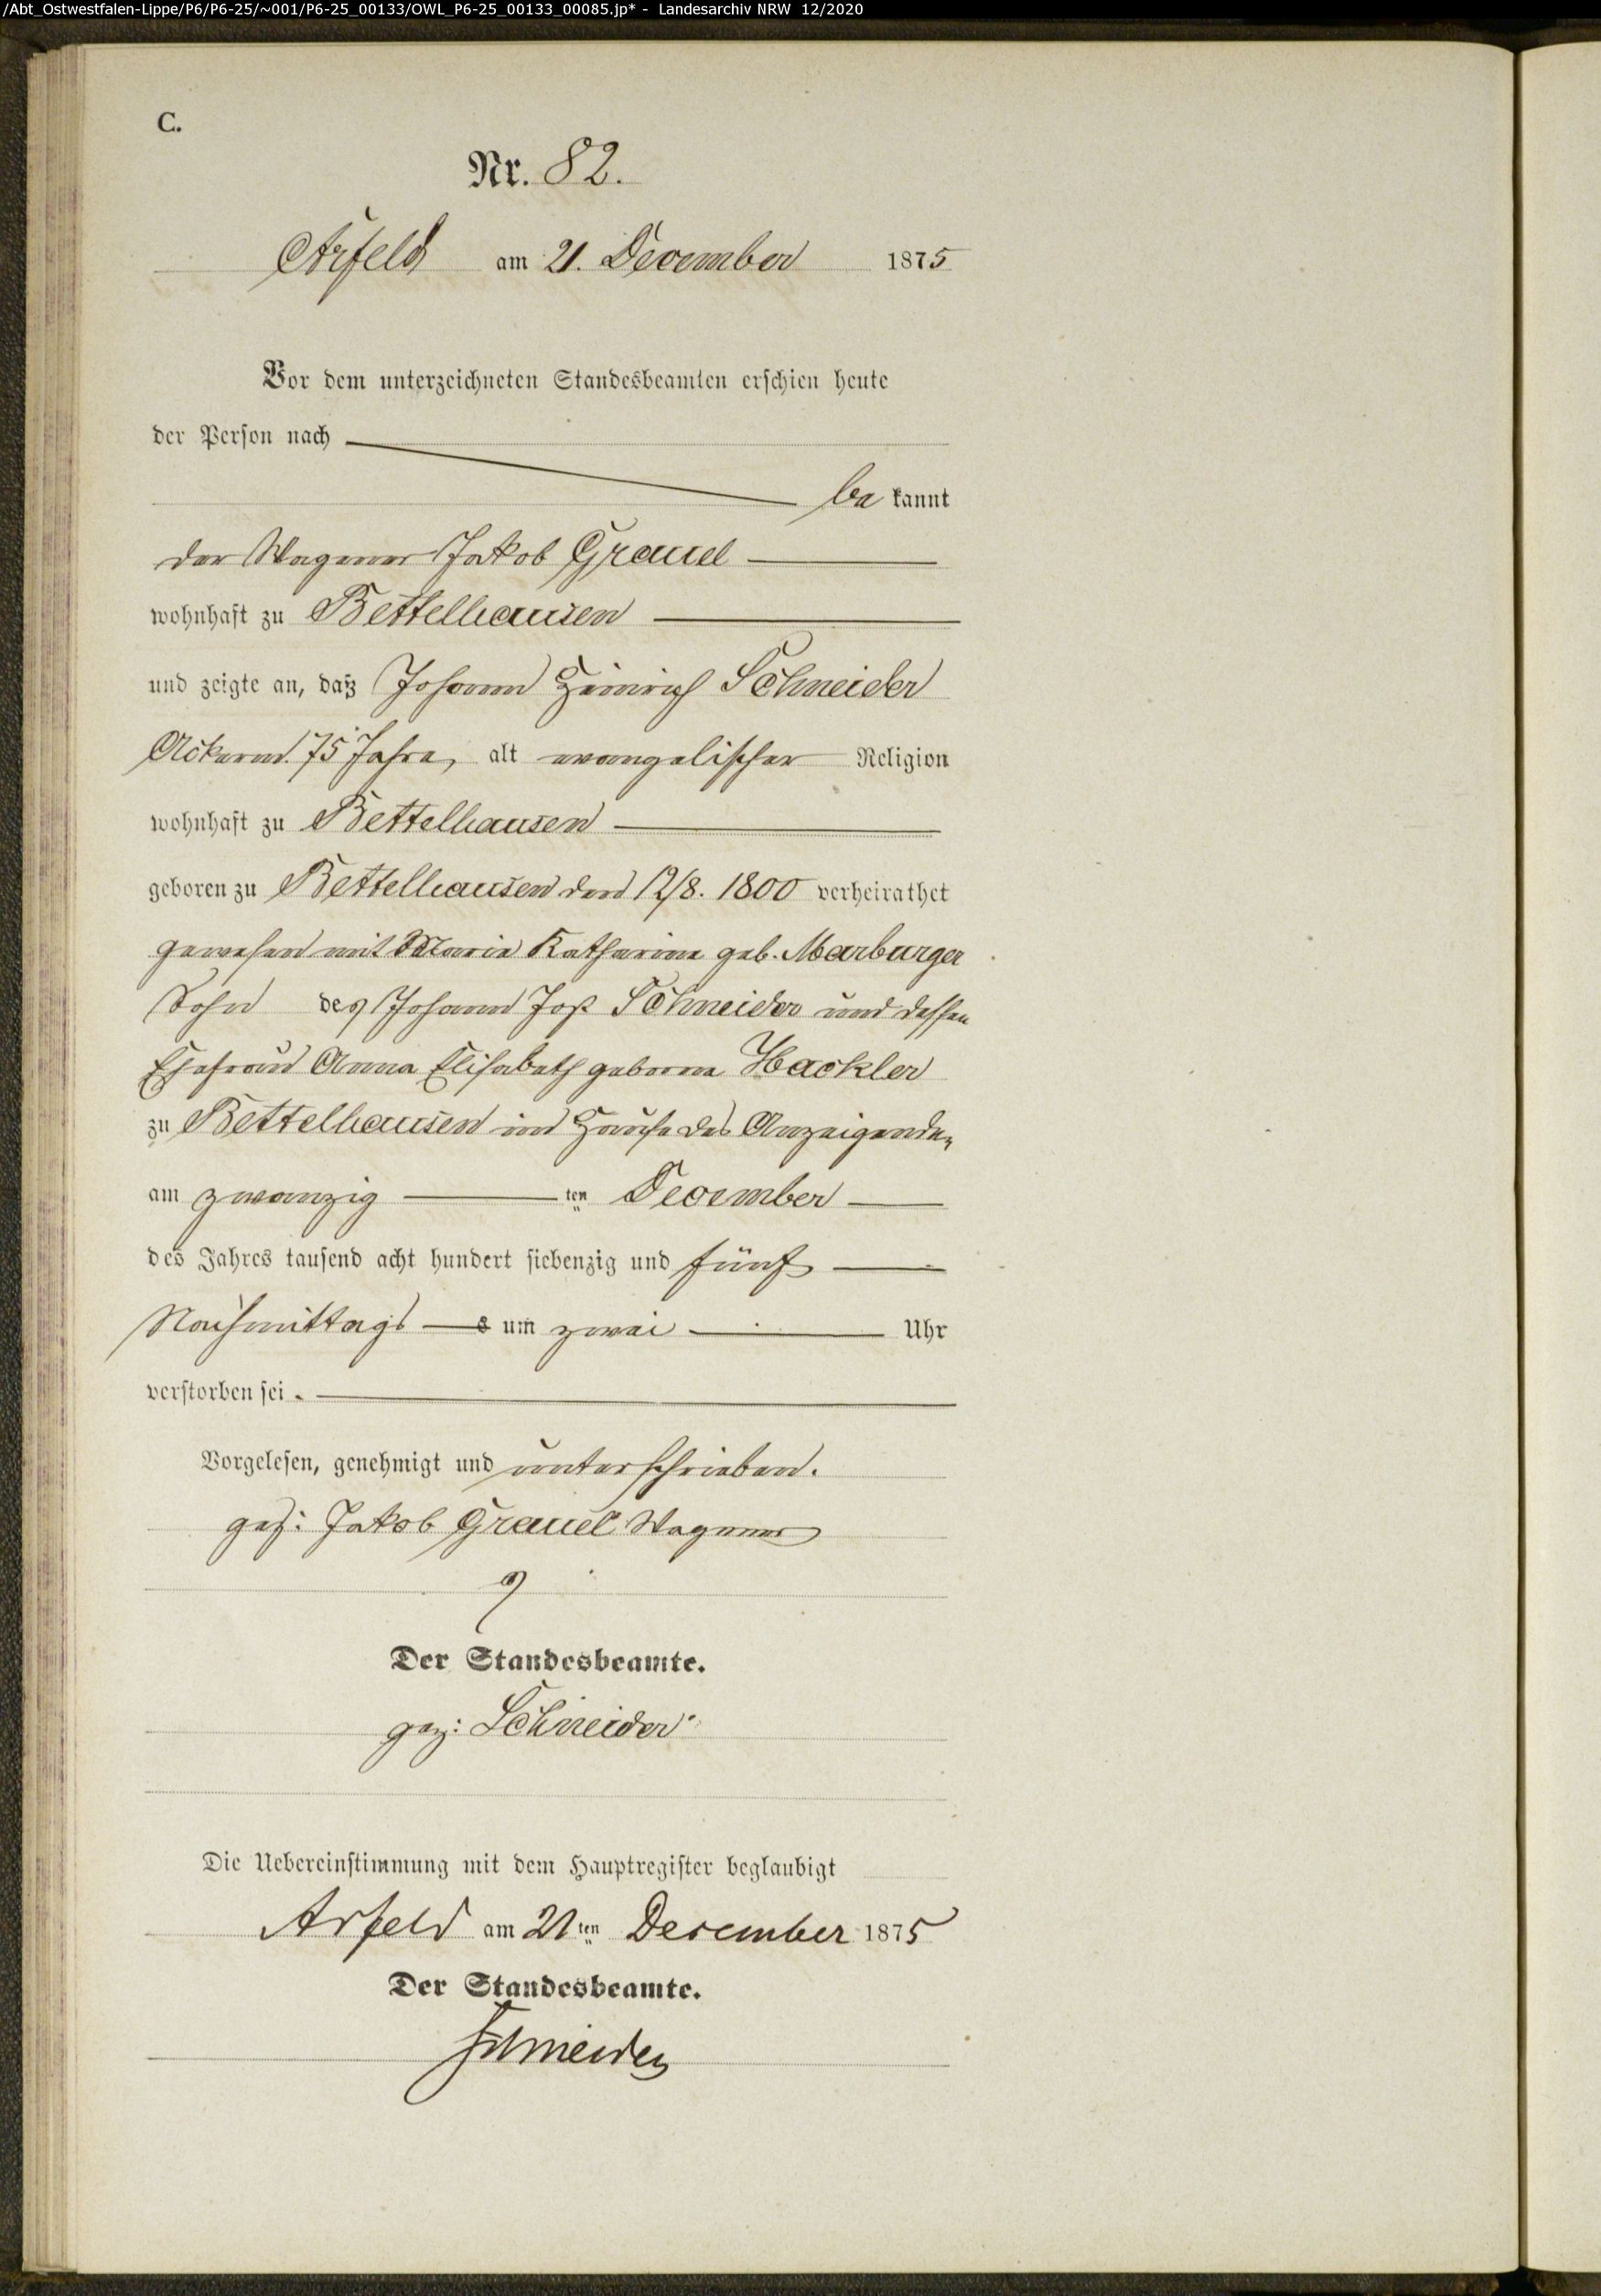 /Abt_Ostwestfalen-Lippe/P6/P6-25/~001/P6-25_00133/OWL_P6-25_00133_00085.jp* - Landesarchiv NRW 12/2020
C.
Nr. 82.
Arfeld am 21. December 1875
Vor dem unterzeichneten Standesbeamten erschien heute
der Person nach
be kannt
der Wagener Jakob Grauel
wohnhaft zu Bettelhausen
und zeigte an, daß Johann Heinrich Schneider
Ackerm. 75 Jahre, alt evangelischer Religion
wohnhaft zu Bettelhausen
geboren zu Bettelhausen den 12/8. 1800 verheirathet
gewesen mit Maria Katharine geb. Marburger
Sohn des Johann Jost Schneider und dessen
Ehefrau Anna Elisabeth geborne Hackler
zu Bettelhausen im Hause des Anzeigenden
am zwanzig ten December
des Jahres tausend acht hundert siebenzig und fünf
Nachmittags um zwei Uhr
verstorben sei.
Vorgelesen, genehmigt und unterschrieben.
gez: Jakob Grauel Wagener
Der Standesbeamte.
gez: Schneider
Die Uebereinstimmung mit dem Hauptregister beglaubigt
Arfeld am 21ten December 1875
Der Standesbeamte.
Schneider